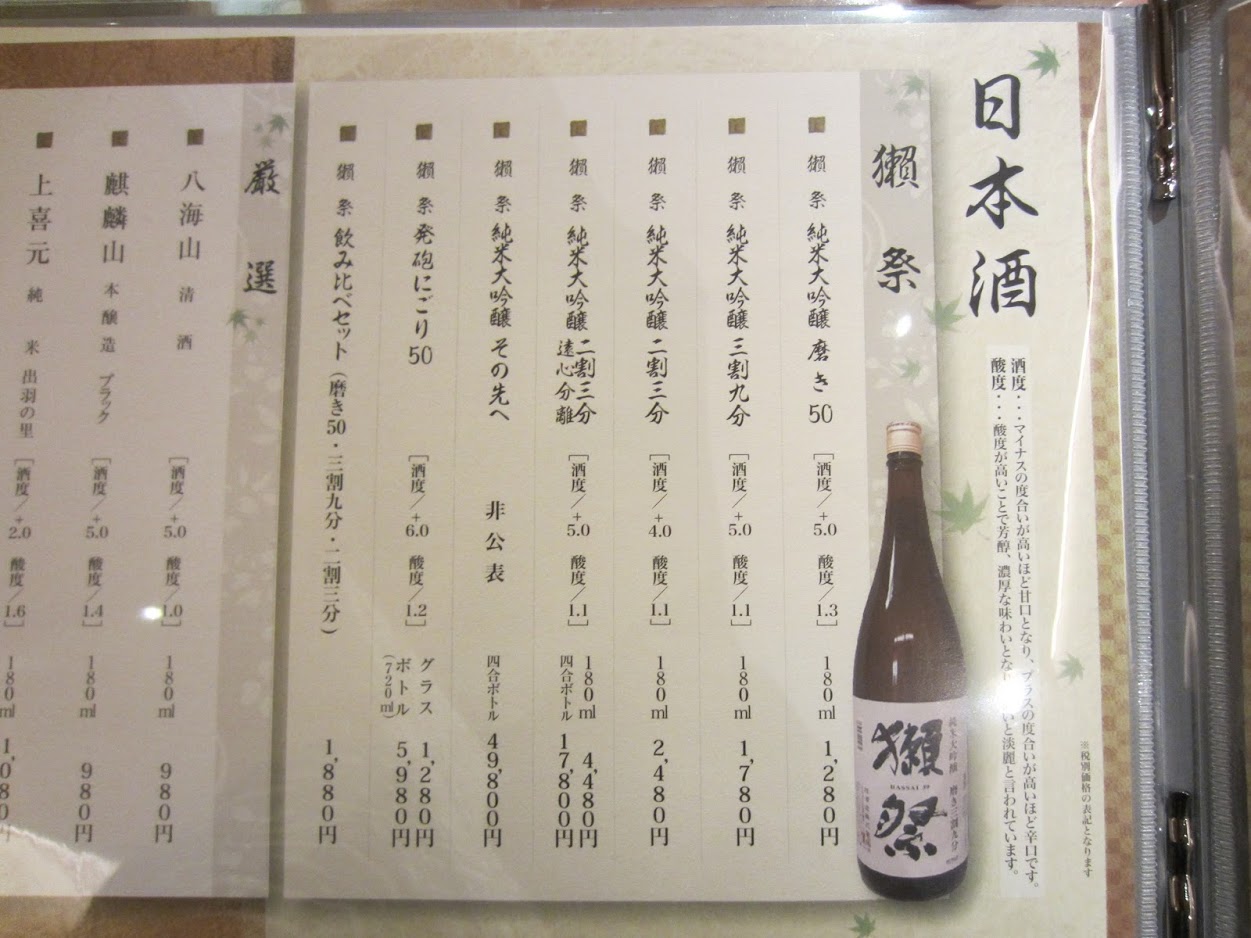 日本酒
酒度・・・マイナスの度合いが高いほど甘口となり、プラスの度合いが高いほど辛口です。
酸度・・・酸度が高いことで芳醇、濃厚な味わいとな いと淡麗と言われています。
※税別価格の表記となります
獺祭
獺祭 純米大吟醸 磨き50 [酒度/+5.0 酸度/1.3] 180ml 1,280円
獺祭 純米大吟醸 三割九分 [酒度/+5.0 酸度/1.1] 180ml 1,780円
獺祭 純米大吟醸 二割三分 [酒度/+4.0 酸度/1.1] 180ml 2,480円
獺祭 純米大吟醸 二割三分 遠心分離 [酒度/+5.0 酸度/1.1] 180ml 4,480円
四合ボトル 17,800円
獺祭 純米大吟醸 その先へ 非公表 四合ボトル 49,800円
獺祭 発砲にごり50 [酒度/+6.0 酸度/1.2] グラス 1,280円
ボトル(720ml) 5,980円
獺祭 飲み比べセット(磨き50・三割九分・二割三分) 1,880円
純米大吟醸 磨き三割九分
獺祭
DASSAI 39
厳選
八海山 清酒 [酒度/+5.0 酸度/1.0] 180ml 980円
麒麟山 本醸造 ブラック [酒度/+5.0 酸度/1.4] 180ml 980円
上喜元 純米 出羽の里 [酒度/+2.0 酸度/1.6] 180ml 1,080円